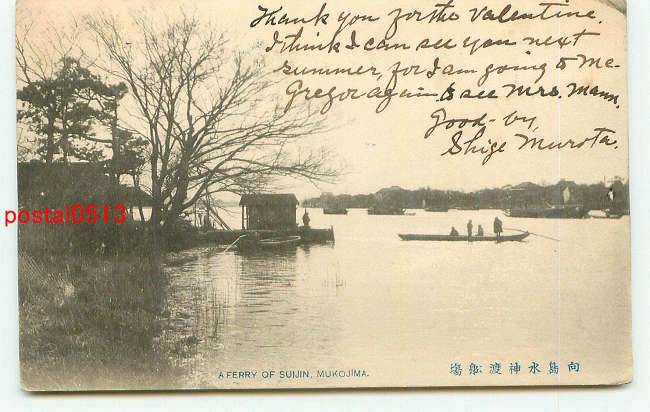 Thank you for the Valentine.
I think I can see you next
summer, for I am going to Mc-
Gregor again to see Mrs. Mann.
Good-by,
Shige Murota.
postal0513
A FERRY OF SUIJIN, MUKOJIMA.
向島水神渡船場